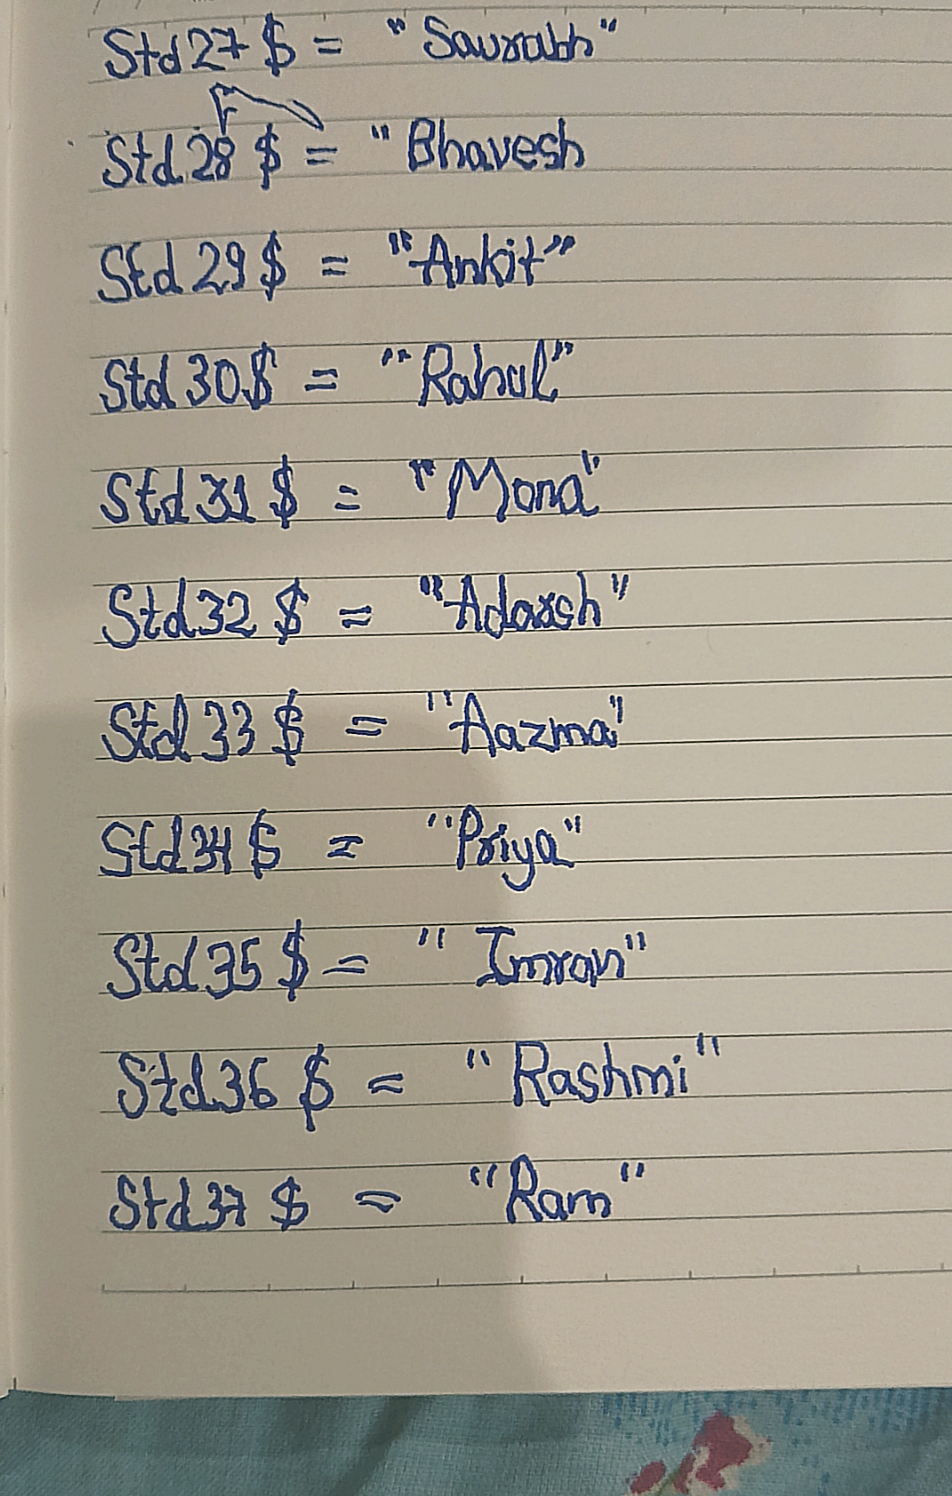 Std27$ = "Saurabh"
Std28$ = "Bhavesh
Std29$ = "Ankit"
Std30$ = "Rahul"
Std31$ = "Mona"
Std32$ = "Adarsh"
Std33$ = "Aazma"
Std34$ = "Priya"
Std35$ = "Imran"
Std36$ = "Rashmi"
Std37$ = "Ram"